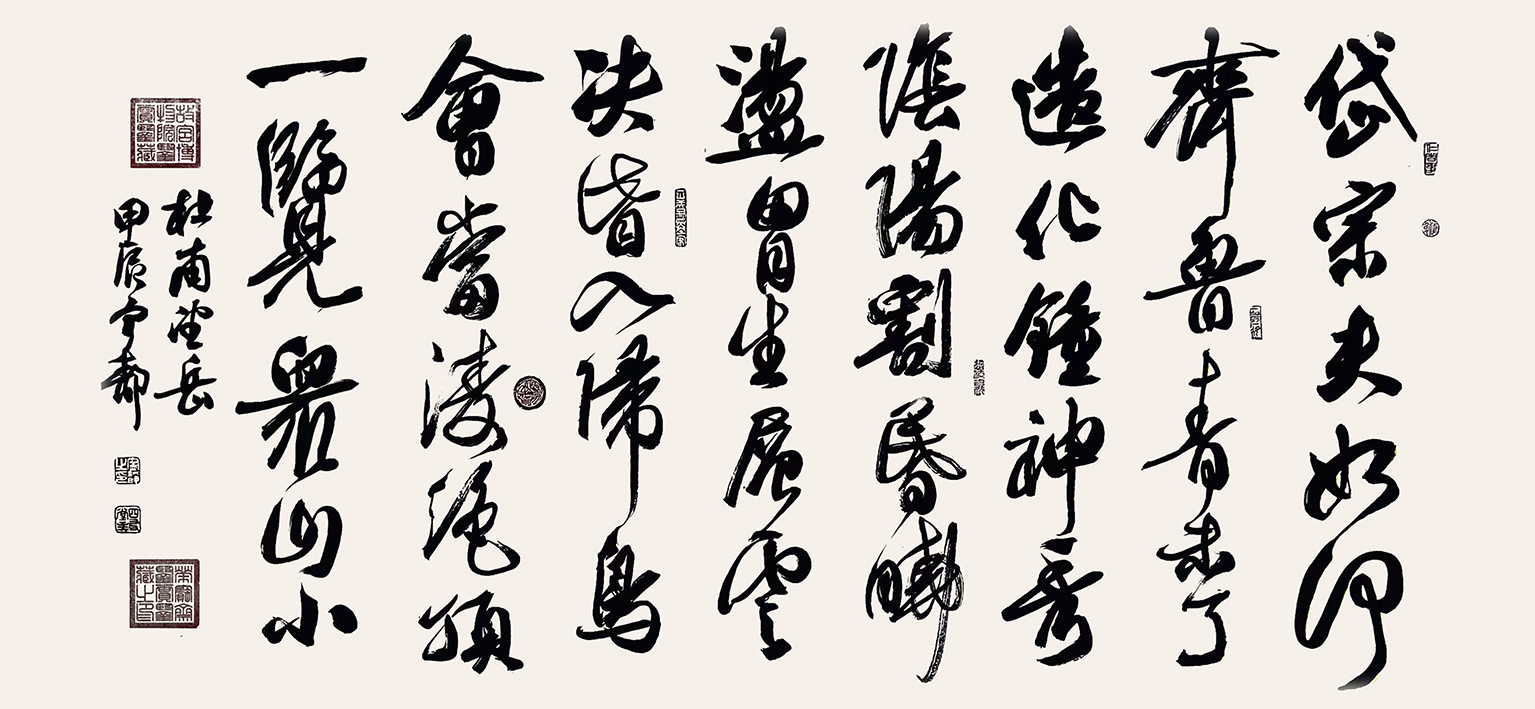 岱宗夫如何
齊魯青未了
造化鍾神秀
陰陽割昏曉
盪胷生層雲
決眥入歸鳥
會當淩絕頂
一覽眾山小
杜甫望岳
甲辰